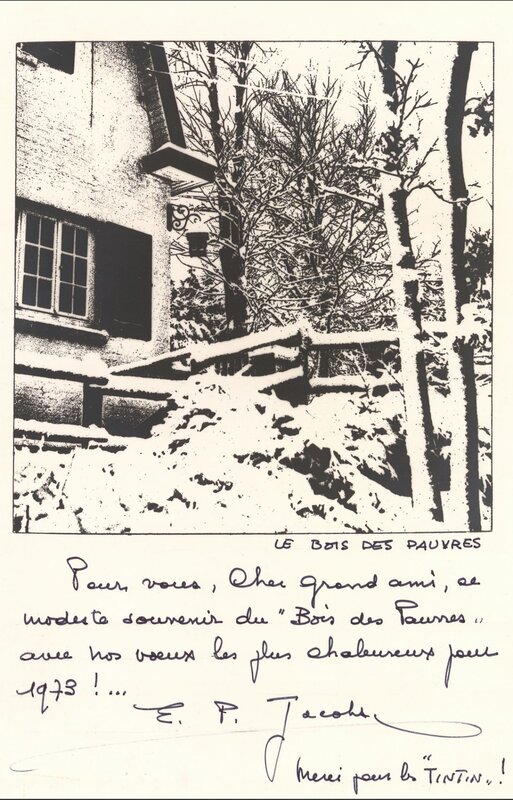 LE BOIS DES PAUVRES
Pour vous, Cher grand ami, ce
modeste souvenir du "Bois des Pauvres"
avec nos vœux les plus chaleureux pour
1973 !...
E. P. Jacobs
Merci pour les "TINTIN" !